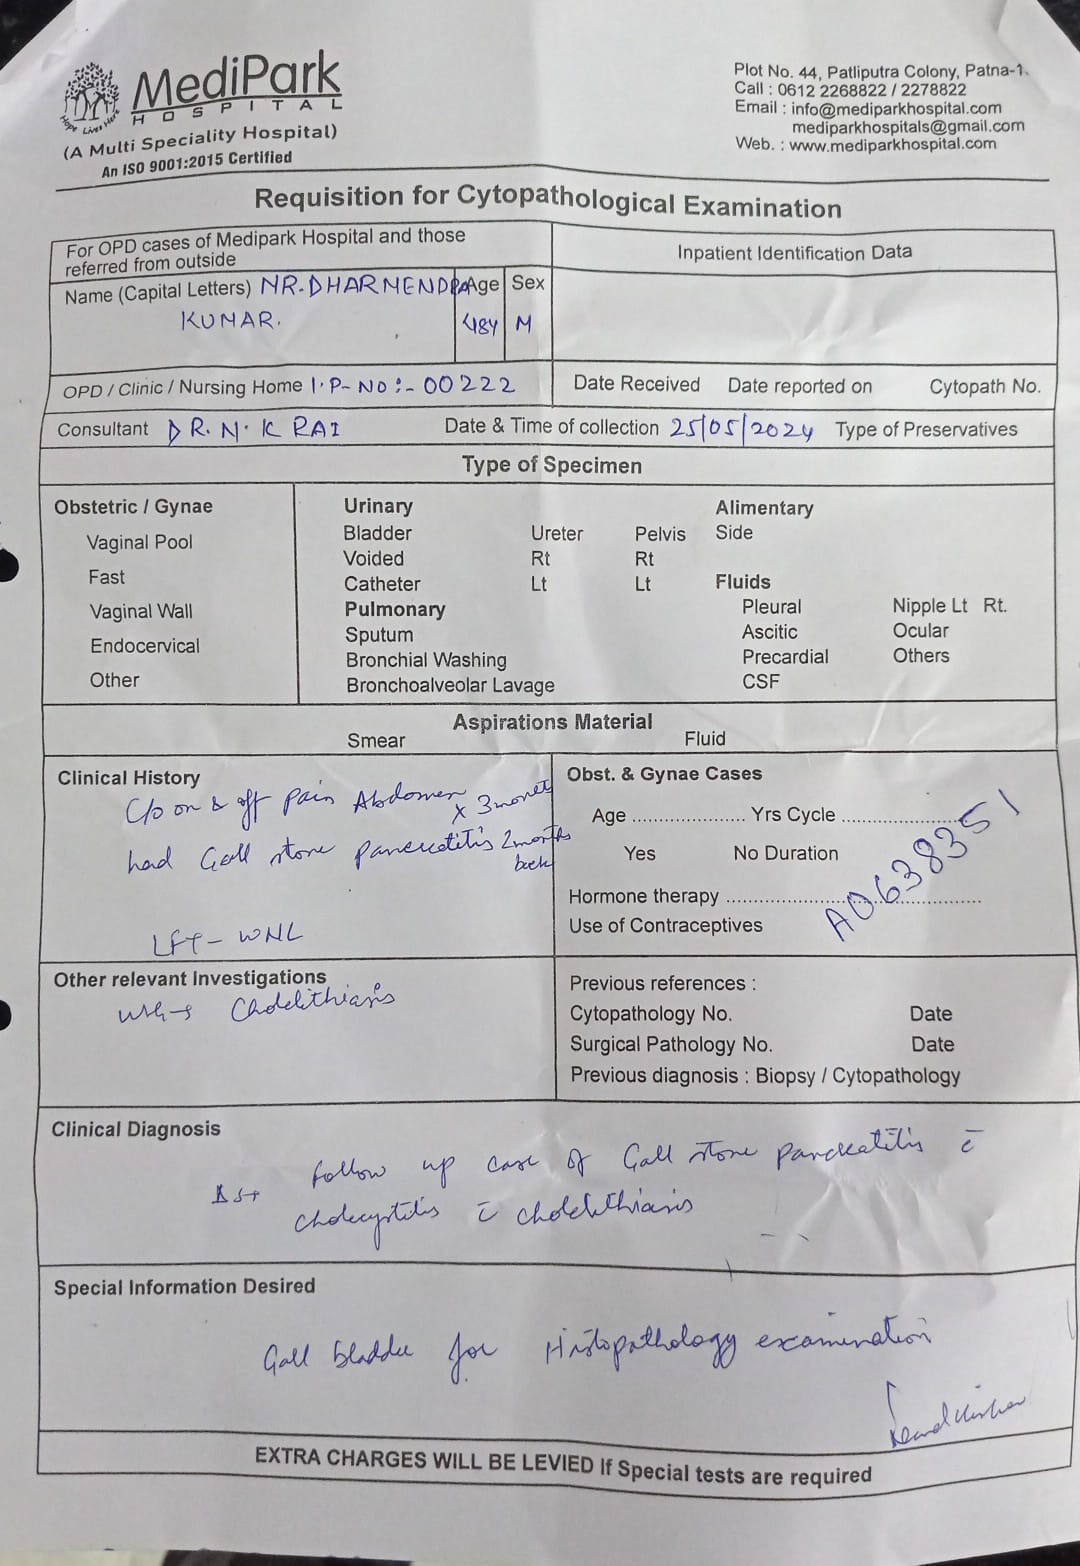 MediPark
HOSPITAL
Hope Lives Here
(A Multi Speciality Hospital)
An ISO 9001:2015 Certified
Plot No. 44, Patliputra Colony, Patna-1.
Call : 0612 2268822 / 2278822
Email : info@mediparkhospital.com
mediparkhospitals@gmail.com
Web. : www.mediparkhospital.com
Requisition for Cytopathological Examination
For OPD cases of Medipark Hospital and those
referred from outside
Inpatient Identification Data
Name (Capital Letters) MR. DHARMENDRA Age Sex
KUMAR. 48Y M
OPD / Clinic / Nursing Home I.P-NO:- 00222 Date Received Date reported on Cytopath No.
Consultant DR. N. K RAI Date & Time of collection 25/05/2024 Type of Preservatives
Type of Specimen
Obstetric / Gynae
Vaginal Pool
Fast
Vaginal Wall
Endocervical
Other
Urinary
Bladder Ureter Pelvis
Voided Rt Rt
Catheter Lt Lt
Pulmonary
Sputum
Bronchial Washing
Bronchoalveolar Lavage
Alimentary
Side
Fluids
Pleural Nipple Lt Rt.
Ascitic Ocular
Precardial Others
CSF
Aspirations Material
Smear Fluid
Clinical History
C/o on & off pain Abdomen
x 3 months
had Gall stone pancreatitis 2 months
back
LFT - WNL
Obst. & Gynae Cases
Age .................... Yrs Cycle ....................
Yes No Duration
Hormone therapy ............................................
Use of Contraceptives
A0638351
Other relevant Investigations
USG → Cholelithiasis
Previous references :
Cytopathology No. Date
Surgical Pathology No. Date
Previous diagnosis : Biopsy / Cytopathology
Clinical Diagnosis
follow up case of Gall stone pancreatitis c̄
cholecystitis c̄ cholelithiasis
Special Information Desired
Gall bladder for Histopathology examination
EXTRA CHARGES WILL BE LEVIED If Special tests are required